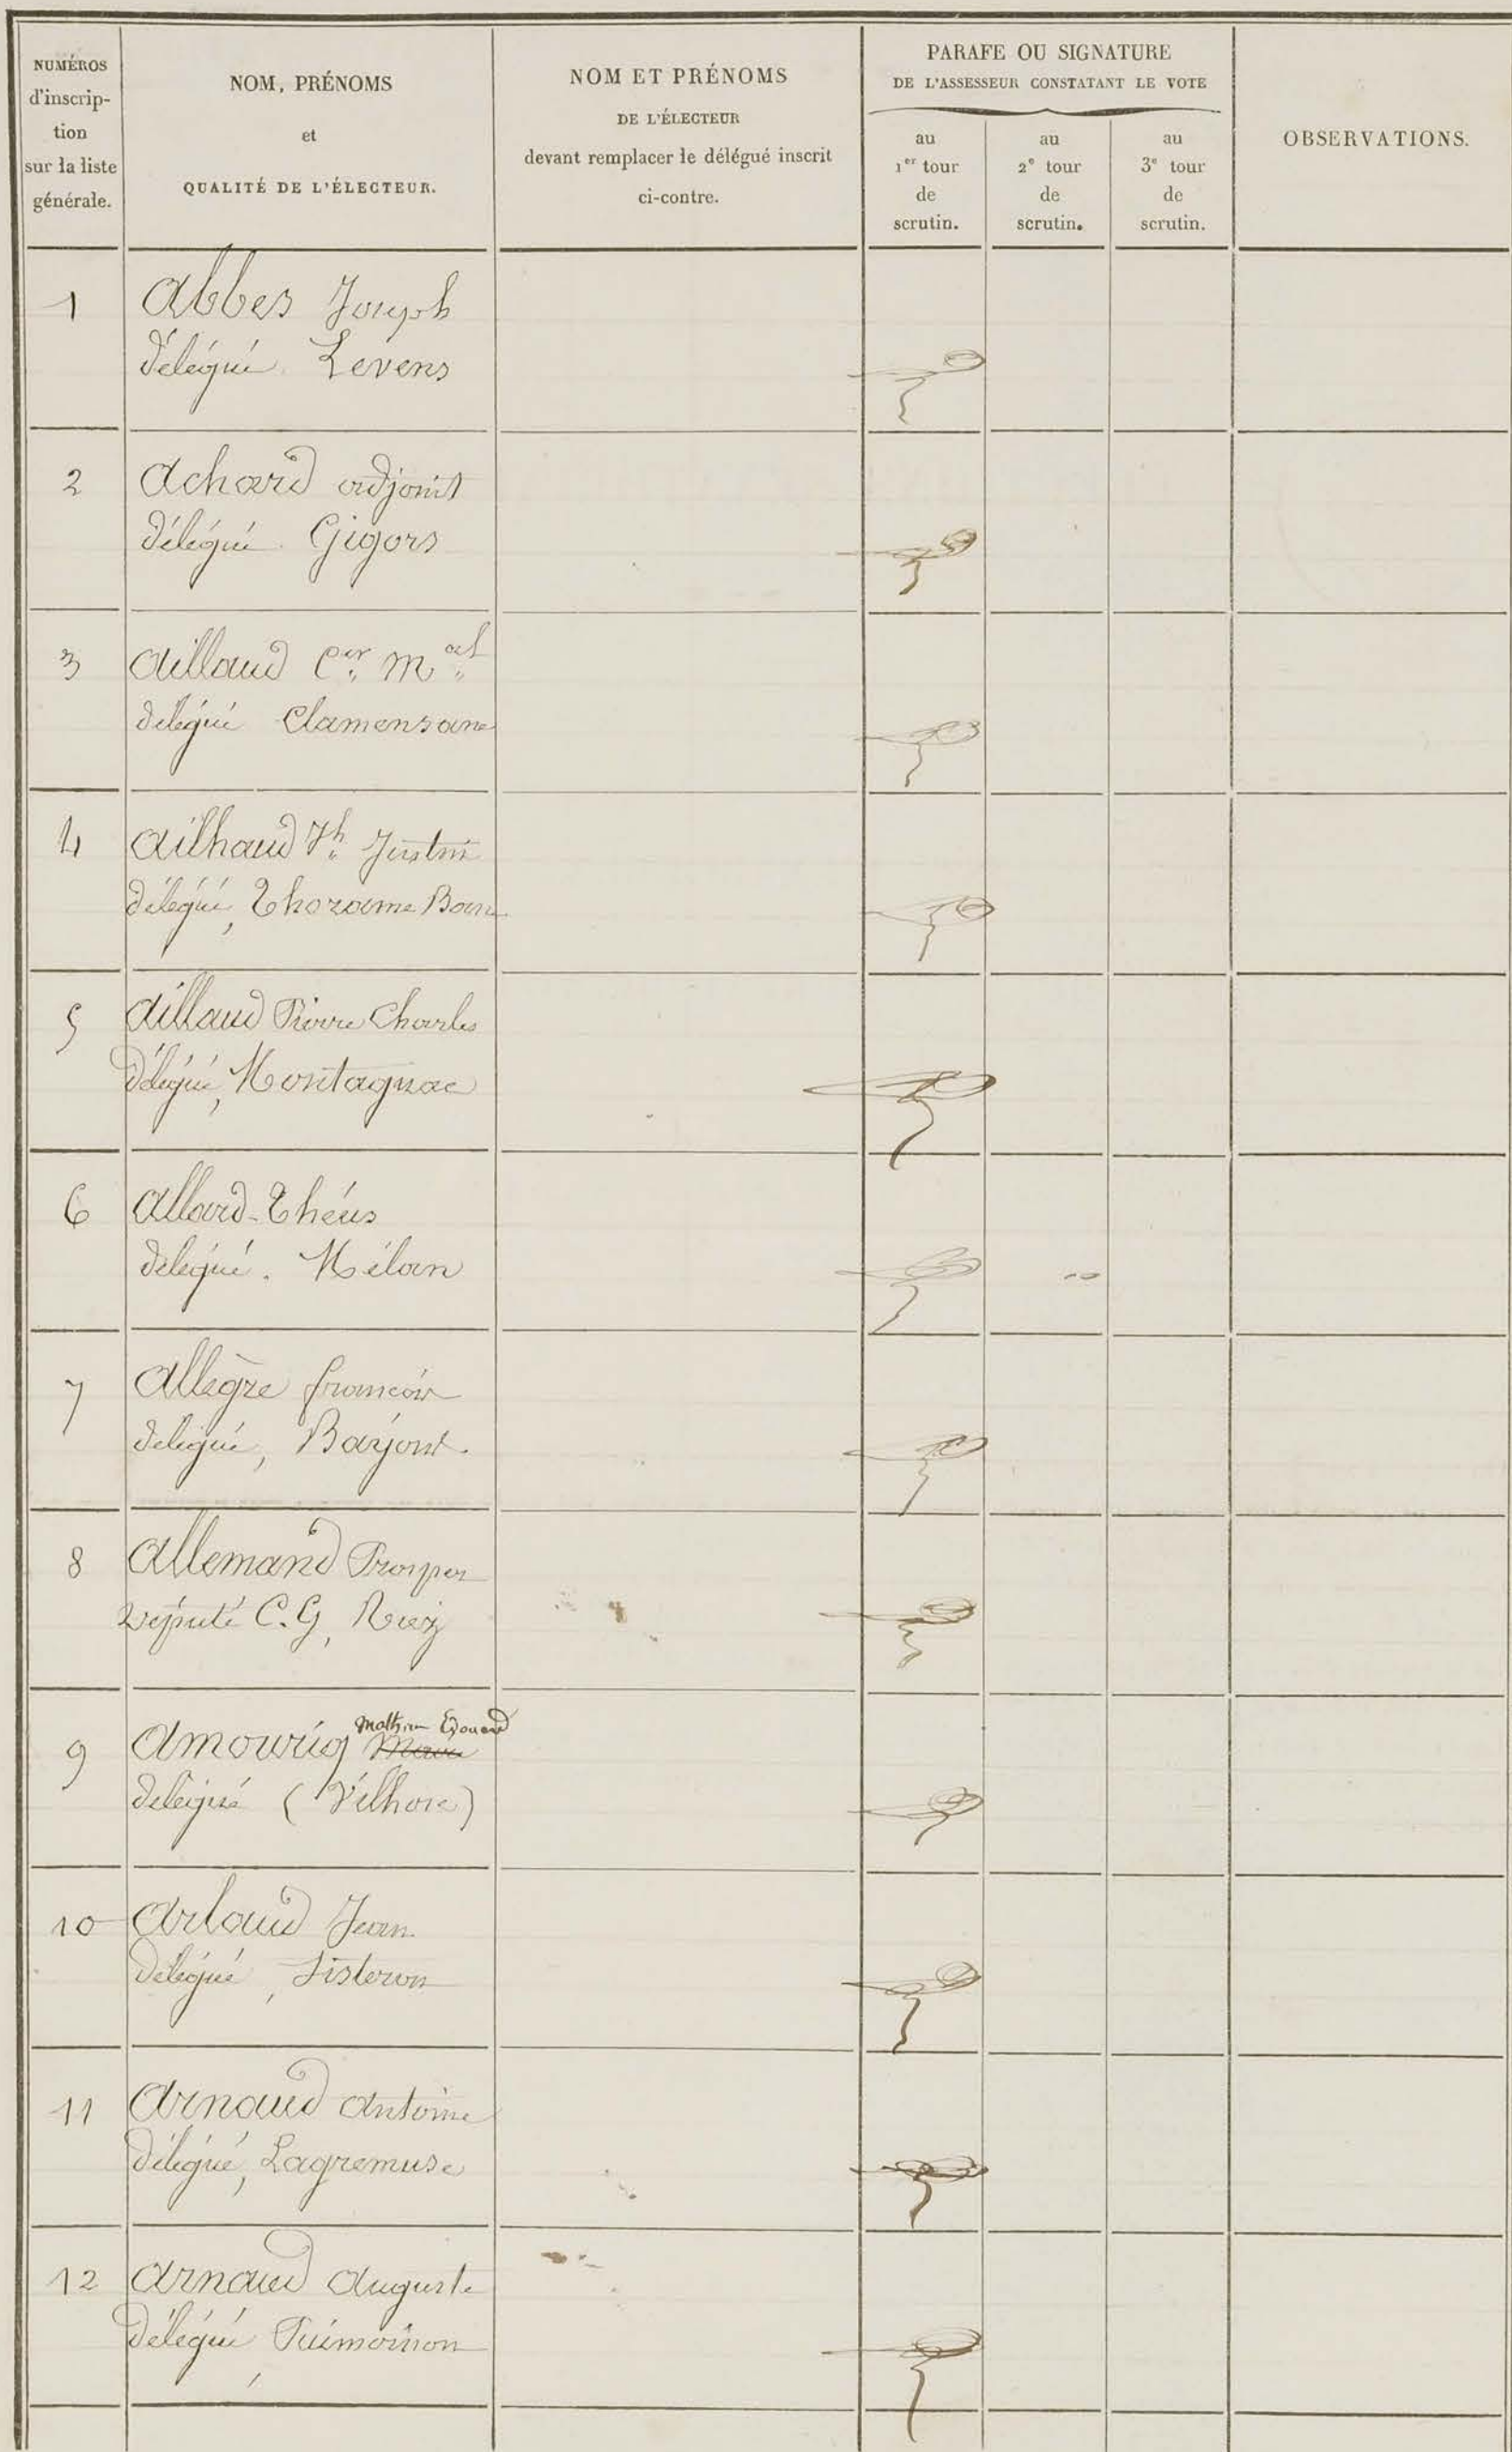 NUMÉROS
d'inscrip-
tion
sur la liste
générale.
NOM, PRÉNOMS
et
QUALITÉ DE L'ÉLECTEUR.
NOM ET PRÉNOMS
DE L'ÉLECTEUR
devant remplacer le délégué inscrit
ci-contre.
PARAFE OU SIGNATURE
DE L'ASSESSEUR CONSTATANT LE VOTE
au
1er tour
de
scrutin.
au
2e tour
de
scrutin.
au
3e tour
de
scrutin.
OBSERVATIONS.
1 Abbes Joseph
délégué Levens
2 Achard adjoint
délégué Gigors
3 Aillaud Cer Mal
délégué Clamensane
4 Ailhaud Jh Justin
délégué, Thorame Basse
5 Aillaud Pierre Charles
délégué, Montagnac
6 Allard-Théus
délégué. Mélan
7 Allègre françois
délégué, Barjont.
8 Allemand Prosper
Député C.G, Riez
9 Amouriq Mathieu Edouard
délégué (Vilhore)
10 Arlaud Jean
délégué, Sisteron
11 Arnaud Antoine
délégué, Lagremuse
12 Arnaud Auguste
délégué Puimoisson